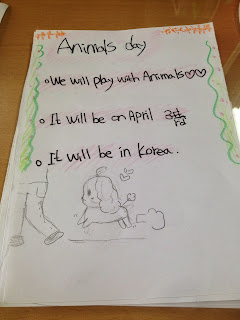 Animals day
We will play with Animals♡♡
It will be on April 3rd
It will be in Korea.